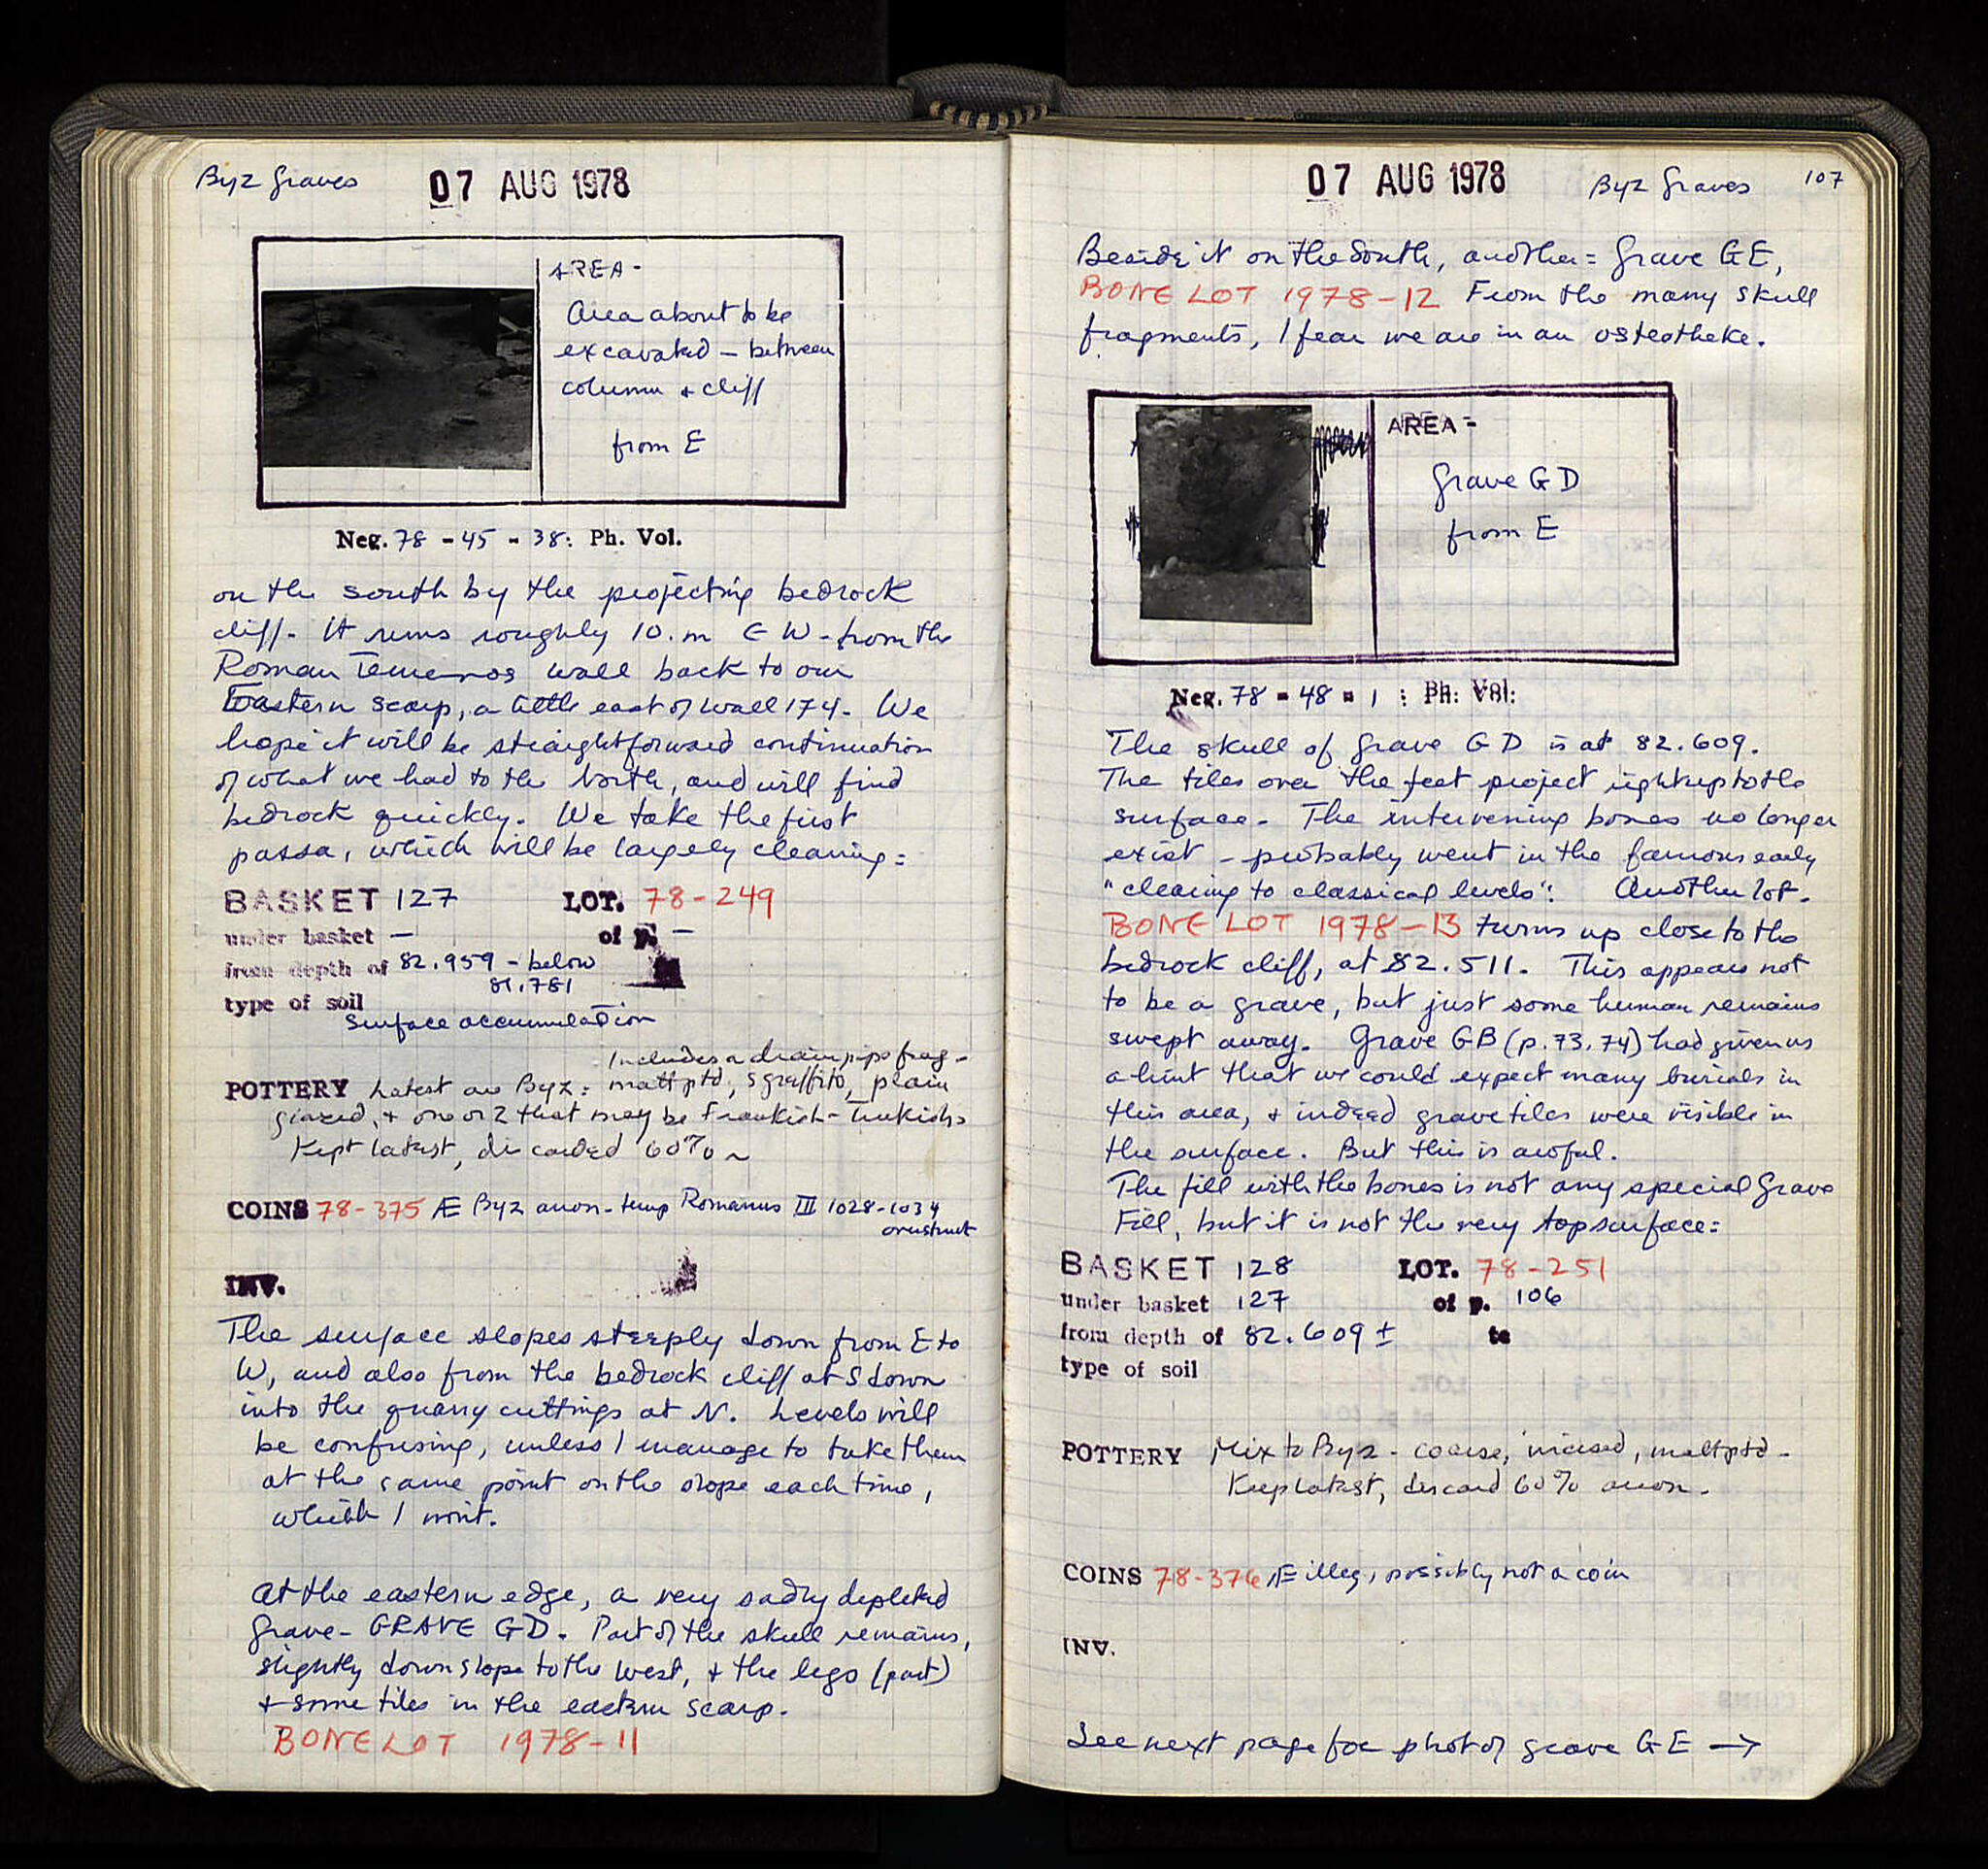 Byz Graves
07 AUG 1978
AREA-
Area about to be
excavated - between
column + cliff
from E
Neg. 78 - 45 - 38: Ph. Vol.
on the south by the projecting bedrock
cliff. It runs roughly 10.m E W - from the
Roman Temenos wall back to our
Eastern scarp, a little east of wall 174. We
hope it will be straightforward continuation
of what we had to the North, and will find
bedrock quickly. We take the first
passa, which will be largely cleaning:
BASKET 127 LOT. 78-249
under basket — of p. —
from depth of 82.959 - below
81.781
type of soil
surface accumulation
Includes a drain pipe frag-
POTTERY Latest are Byz: matt ptd, sgraffito, plain
glazed, + one or 2 that may be Frankish-Turkish.
Kept latest, discarded 60% ~
COINS 78-375 Æ Byz anon. temp Romanus III 1028-1034
overstruck
INV.
The surface slopes steeply down from E to
W, and also from the bedrock cliff at S down
into the quarry cuttings at N. Levels will
be confusing, unless I manage to take them
at the same point on the slope each time,
which I won't.
At the eastern edge, a very sadly depleted
Grave - GRAVE GD. Part of the skull remains,
slightly down slope to the west, + the legs (part)
+ some tiles in the eastern scarp.
BONE LOT 1978-11
07 AUG 1978
Byz Graves 107
Beside it on the South, another = Grave GE,
BONE LOT 1978-12 From the many skull
fragments, I fear we are in an osteotheke.
AREA -
Grave GD
from E
Neg. 78 - 48 - 1 : Ph. Vol.
The skull of Grave GD is at 82.609.
The tiles over the feet project right up to the
surface. The intervening bones no longer
exist - probably went in the famous early
"clearing to classical levels". Another lot.
BONE LOT 1978-13 turns up close to the
bedrock cliff, at 82.511. This appears not
to be a grave, but just some human remains
swept away. Grave GB (p. 73, 74) had given us
a hint that we could expect many burials in
this area, + indeed grave tiles were visible in
the surface. But this is awful.
The fill with the bones is not any special Grave
Fill, but it is not the very top surface:
BASKET 128 LOT. 78-251
under basket 127 of p. 106
from depth of 82.609 ± to
type of soil
POTTERY Mix to Byz - coarse, incised, matt ptd -
Keep latest, discard 60% anon.
COINS 78-376 Æ illeg, possibly not a coin
INV.
See next page for photo of grave GE →